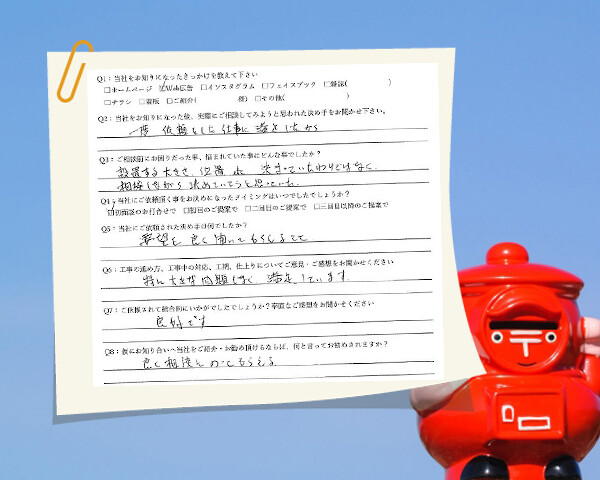 Q1：当社をお知りになったきっかけを教えて下さい
□ホームページ ☑Web広告 □インスタグラム □フェイスブック □雑誌( )
□チラシ □看板 □ご紹介( 様) □その他( )
Q2：当社をお知りになった後、実際にご相談してみようと思われた決め手をお聞かせ下さい。
一度 依頼をした仕事に満足したから
Q3：ご相談前にお困りだった事、悩まれていた事はどんな事でしたか？
設置する大きさ、位置 決まっていたわけではなく、
相談しながら決めていこうと思っていた
Q4：当社にご依頼頂く事をお決めになったタイミングはいつでしたでしょうか？
☑初回面談のお打合せで □初回のご提案で □二回目のご提案で □三回目以降のご提案で
Q5：当社にご依頼された決め手は何でしたか？
希望を良く聞いてもらえること
Q6：工事の進め方、工事中の対応、工期、仕上りについてご意見・ご感想をお聞かせください
特に大きな問題もなく 満足しています
Q7：ご依頼されて総合的にいかがでしたでしょうか？率直なご感想をお聞かせください
良好です
Q8：仮にお知り合いへ当社をご紹介・お勧め頂けるならば、何と言ってお勧めされますか？
良く相談にのってもらえる